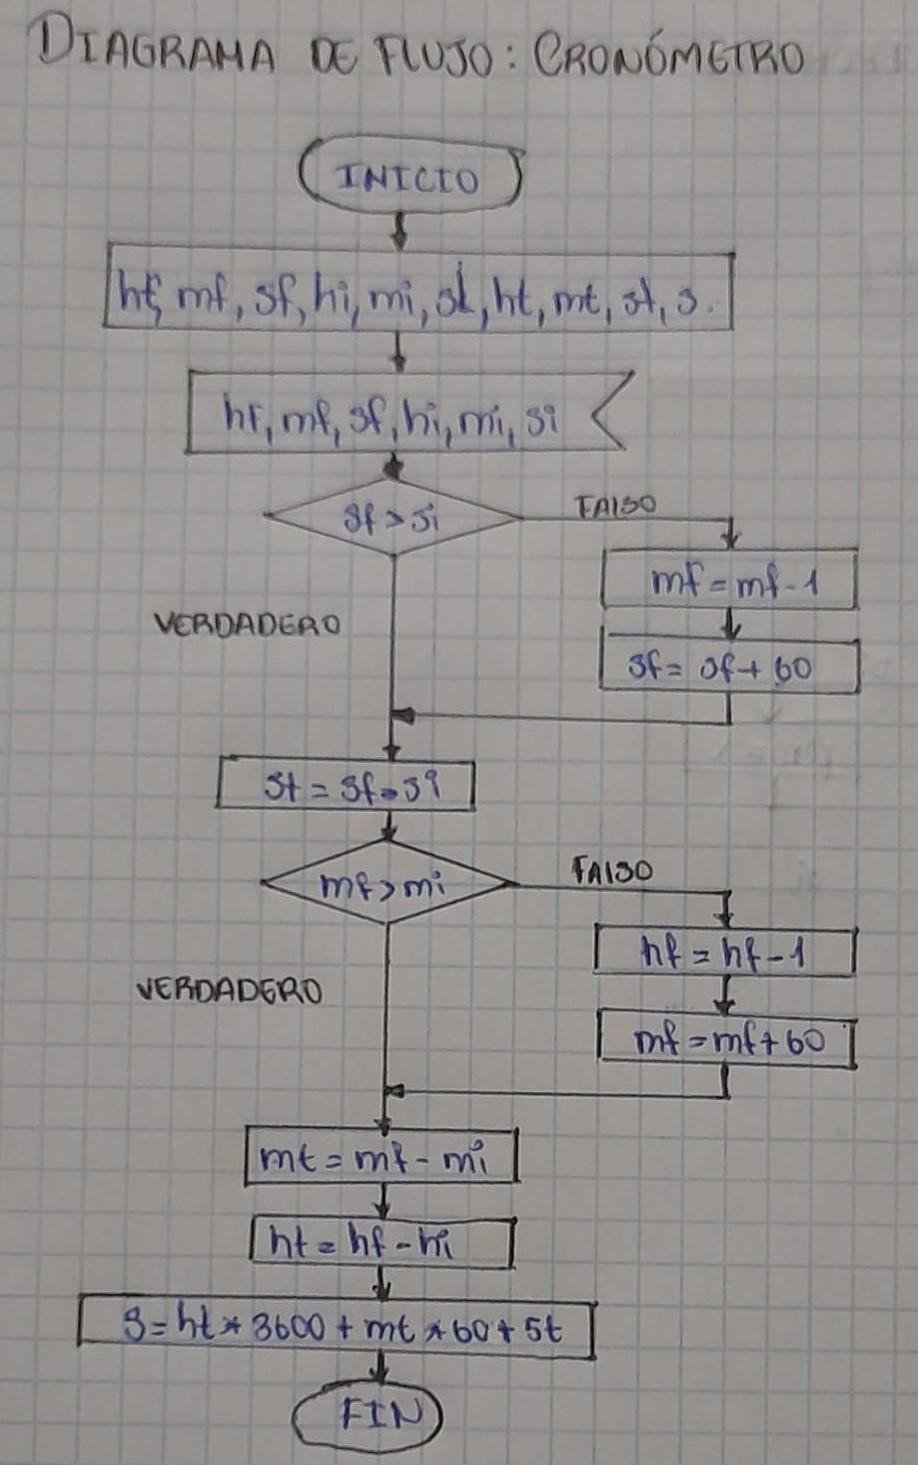 DIAGRAMA DE FLUJO: CRONÓMETRO
INICIO
hf, mf, sf, hi, mi, si, ht, mt, st, s.
hf, mf, sf, hi, mi, si
sf > si
FALSO
mf = mf - 1
VERDADERO
sf = sf + 60
st = sf - si
mf > mi
FALSO
hf = hf - 1
VERDADERO
mf = mf + 60
mt = mf - mi
ht = hf - hi
s = ht * 3600 + mt * 60 + st
FIN